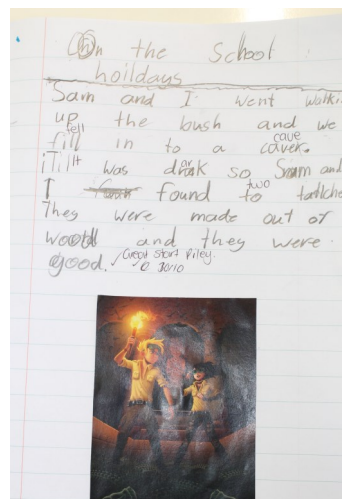 On the School
hoildays
Sam and I went walki
up the bush and we
fell
fill in to a caver.
cave
iTilt was drak so Siam and
ar
I found to tortche
two
They were made out of
woold and they were
good. ✓ Great start Riley.